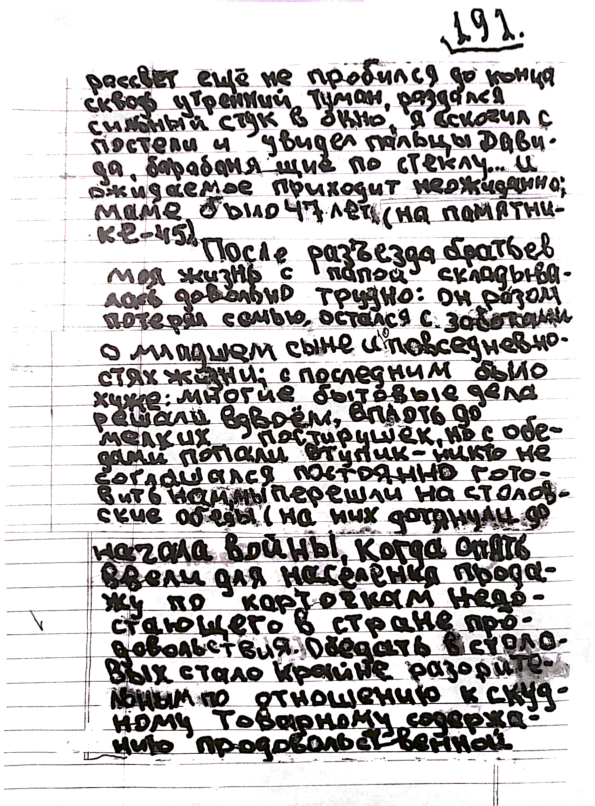 191.
рассвет ещё не пробился до конца
сквозь утренний туман, раздался
сильный стук в окно, я вскочил с
постели и увидел пальцы Дави-
да, барабаня щие по стеклу... И
ожидаемое приходит неожиданно;
маме было 47 лет (на памятни-
ке-45)
После разъезда братьев
моя жизнь с папой складыва-
лась довольно трудно: он разом
потерял семью, остался с заботами
о младшем сыне и повседневно-
стях жизни; с последним было
хуже: многие бытовые дела
решали вдвоём, вплоть до
мелких постирушек, но с обе-
дами попали в тупик - никто не
соглашался постоянно гото-
вить нам, мы перешли на столов-
ские обеды (на них дотянули до
начала войны, когда опять
ввели для населения прода-
жу по карточкам недо-
стающего в стране про-
довольствия. Обедать в столо-
вых стало крайне разорите-
льным по отношению к скуд-
ному товарному содержа-
нию продовольственной